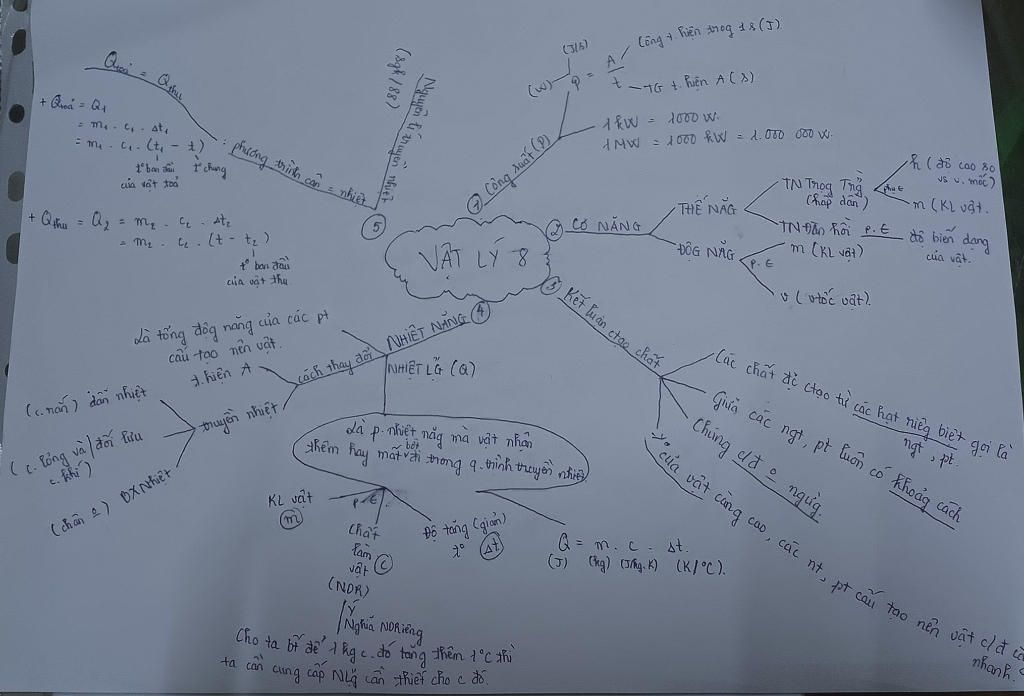 VẬT LÝ 8
① Công suất (P)
(J/s)
(W) P = A / t
Công t. hiện trog 1s (J).
TG t. hiện A (s)
1 kW = 1000 W.
1 MW = 1000 kW = 1.000 000 W.
② CƠ NĂNG
THẾ NĂG
TN Trog Trg̀
(hấp dẫn)
phụ ∈
h (độ cao so
vs v. mốc)
m (KL vật.
TN Đàn hồi p. ∈ độ biến dạng
của vật.
ĐỘG NĂG
p. ∈
m (KL vật)
v (vtốc vật).
③ Kết luận ctạo chất
Các chất đc ctạo từ các hạt riêg biệt gọi là
ngt, pt.
Giữa các ngt, pt luôn có khoảg cách
Chúng c/đ o ngừg
t° của vật càng cao, các nt, pt cấu tạo nên vật c/đ
nhanh.
④ NHIỆT NĂNG
Là tổng độg năng của các pt
cấu tạo nên vật.
cách thay đổi
t. hiện A
truyền nhiệt
(c. rắn) dẫn nhiệt
(c. lỏng và
c. khí) đối lưu
(chân o) BXNhiệt
NHIỆT LG̣ (Q)
Là p. nhiệt năg mà vật nhận
thêm hay mất bớt đi trong q. trình truyền nhiệt
p. ∈
KL vật
m
Chất
làm
vật c
(NDR)
Ý
Nghĩa NDRiêng
Cho ta bt để 1 kg c. đó tăng thêm 1°C thì
ta cần cung cấp NLg̣ cần thiết cho c đó.
Độ tăng (giản)
t° Δt
Q = m. c. Δt.
(J) (kg) (J/kg.K) (K/°C).
⑤ phương trình cân = nhiệt
Nguyên lí truyền nhiệt
(sgk/88)
Qtoả = Qthu
+ Qtoả = Q1
= m1. c1. Δt1
= m1. c1. (t1 - t)
t° ban đầu
của vật toả
t° chung
+ Qthu = Q2 = m2. c2. Δt2
= m2. c2. (t - t2)
t° ban đầu
của vật thu